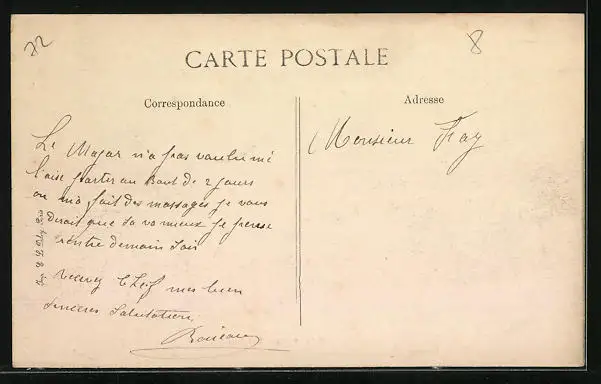 72
8
CARTE POSTALE
Correspondance
Adresse
Le Major n'a pas voulu mé
laisé partir au Bout de 2 jours
on m'a fait des massages je vous
dirait que sa va mieux je pense
rentré demain soir
recevez Chef mes bien
sincères Salutation
Monsieur Fay